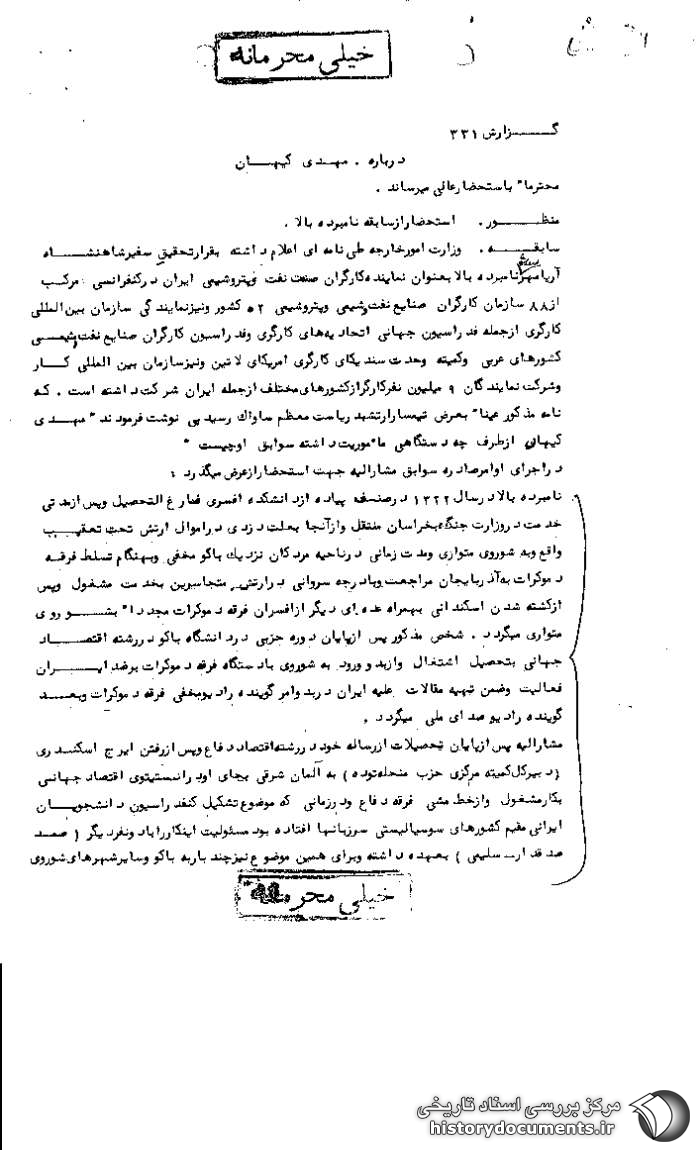 خیلی محرمانه
گـــــزارش ۳۳۱
درباره . مهـدی کیهـــان
محترما" باستحضارعالی میرساند .
منظـــــور . استحضارازسابقه نامبرده بالا .
سابقـــــه . وزارت امورخارجه طی نامه ای اعلام داشته بقرارتحقیق سفیرشاهنشـــاه
آریامهر نامبرده بالا بعنوان نماینده کارگران صنعت نفت وپتروشیمی ایران درکنفرانسی مرکـب
از ۸۸ سازمان کارگران صنایع نفت وشیمی وپتروشیمی ۵۲ کشور ونیزنمایندگی سازمان بین المللی
کارگری ازجمله فدراسیون جهانی اتحادیه‌های کارگری وفدراسیون کارگران صنایع نفت وشیمـــی
کشورهای عربی وکمیته وحدت سندیکای کارگری امریکای لاتین ونیزسازمان بین المللی کــار
وشرکت نمایندگان ۹ میلیون نفرکارگرازکشورهای مختلف ازجمله ایران شرکت داشته است . کـه
نامه مذکور عینا" بعرض تیمسارارتشبد ریاست معظم ساواک رسید پی نوشت فرمودند " مهـدی
کیهان ازطرف چه دستگاهی ماموریت داشته سوابق اوچیست "
دراجرای اوامرصادره سوابق مشارالیه جهت استحضارازعرض میگذرد :
نامبرده بالا درسال ۱۳۲۲ درصنف پیاده ازدانشکده افسری فارغ التحصیل وپس ازمدتی
خدمت دروزارت جنگ بخراسان منتقل وازآنجا بعلت دزدی دراموال ارتش تحت تعقیـــب
واقع وبه شوروی متواری ومدت زمانی درناحیه مردکان نزدیک باکو مخفی وبهنگام تسلط فرقـه
دموکرات به آذربایجان مراجعت وبادرجه سروانی درارتش متجاسرین بخدمت مشغول وپس
ازکشته شدن اسکندانی بهمراه عده ای دیگر ازافسران فرقه دموکرات مجددا" بشـــوروی
متواری میگردد . شخص مذکور پس ازپایان دوره حزبی دردانشگاه باکو دررشته اقتصـــاد
جهانی بتحصیل اشتغال وازبدو ورود به شوروی بادستگاه فرقه دموکرات برضد ایـــران
فعالیت وضمن تهیه مقالات علیه ایران دربدوامر گوینده رادیومخفی فرقه دموکرات وبعـــد
گوینده رادیو صدای ملی میگردد .
مشارالیه پس ازپایان تحصیلات ازرساله خود دررشته اقتصاد دفاع وپس ازرفتن ایرج اسکنـدری
(دبیرکل کمیته مرکزی حزب منحله توده) به آلمان شرقی بجای اودرانستیتوی اقتصاد جهانـی
بکارمشغول وازخط مشی فرقه دفاع ودرزمانی که موضوع تشکیل کنفدراسیون دانشجویـــان
ایرانی مقیم کشورهای سوسیالیستی سرزبانها افتاده بود مسئولیت اینکاررابادونفردیگر (صمـد
سلیمی) بعهده داشته وبرای همین موضوع نیزچندباربه باکو وسایرشهرهای شوروی
خیلی محرمانه
مرکز بررسی اسناد تاریخی
historydocuments.ir